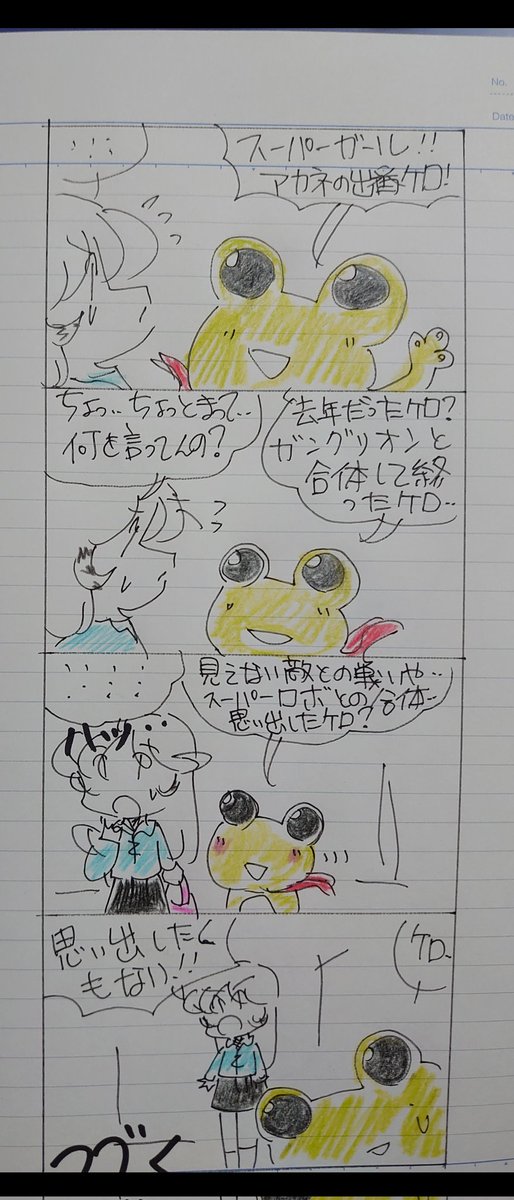 No.
Date
スーパーガール!!
アカネの出番ケロ!
・・・
去年だったケロ?
ガングリオンと
合体して終
ったケロ‥
ちょっ‥ちょっとまって‥
何を言ってんの?
見えない敵との戦いや‥
スーパーロボとの合体‥
思い出したケロ?
・・・・・・
ハッ‥
ケロ‥
思い出したく
もない!!
つづく